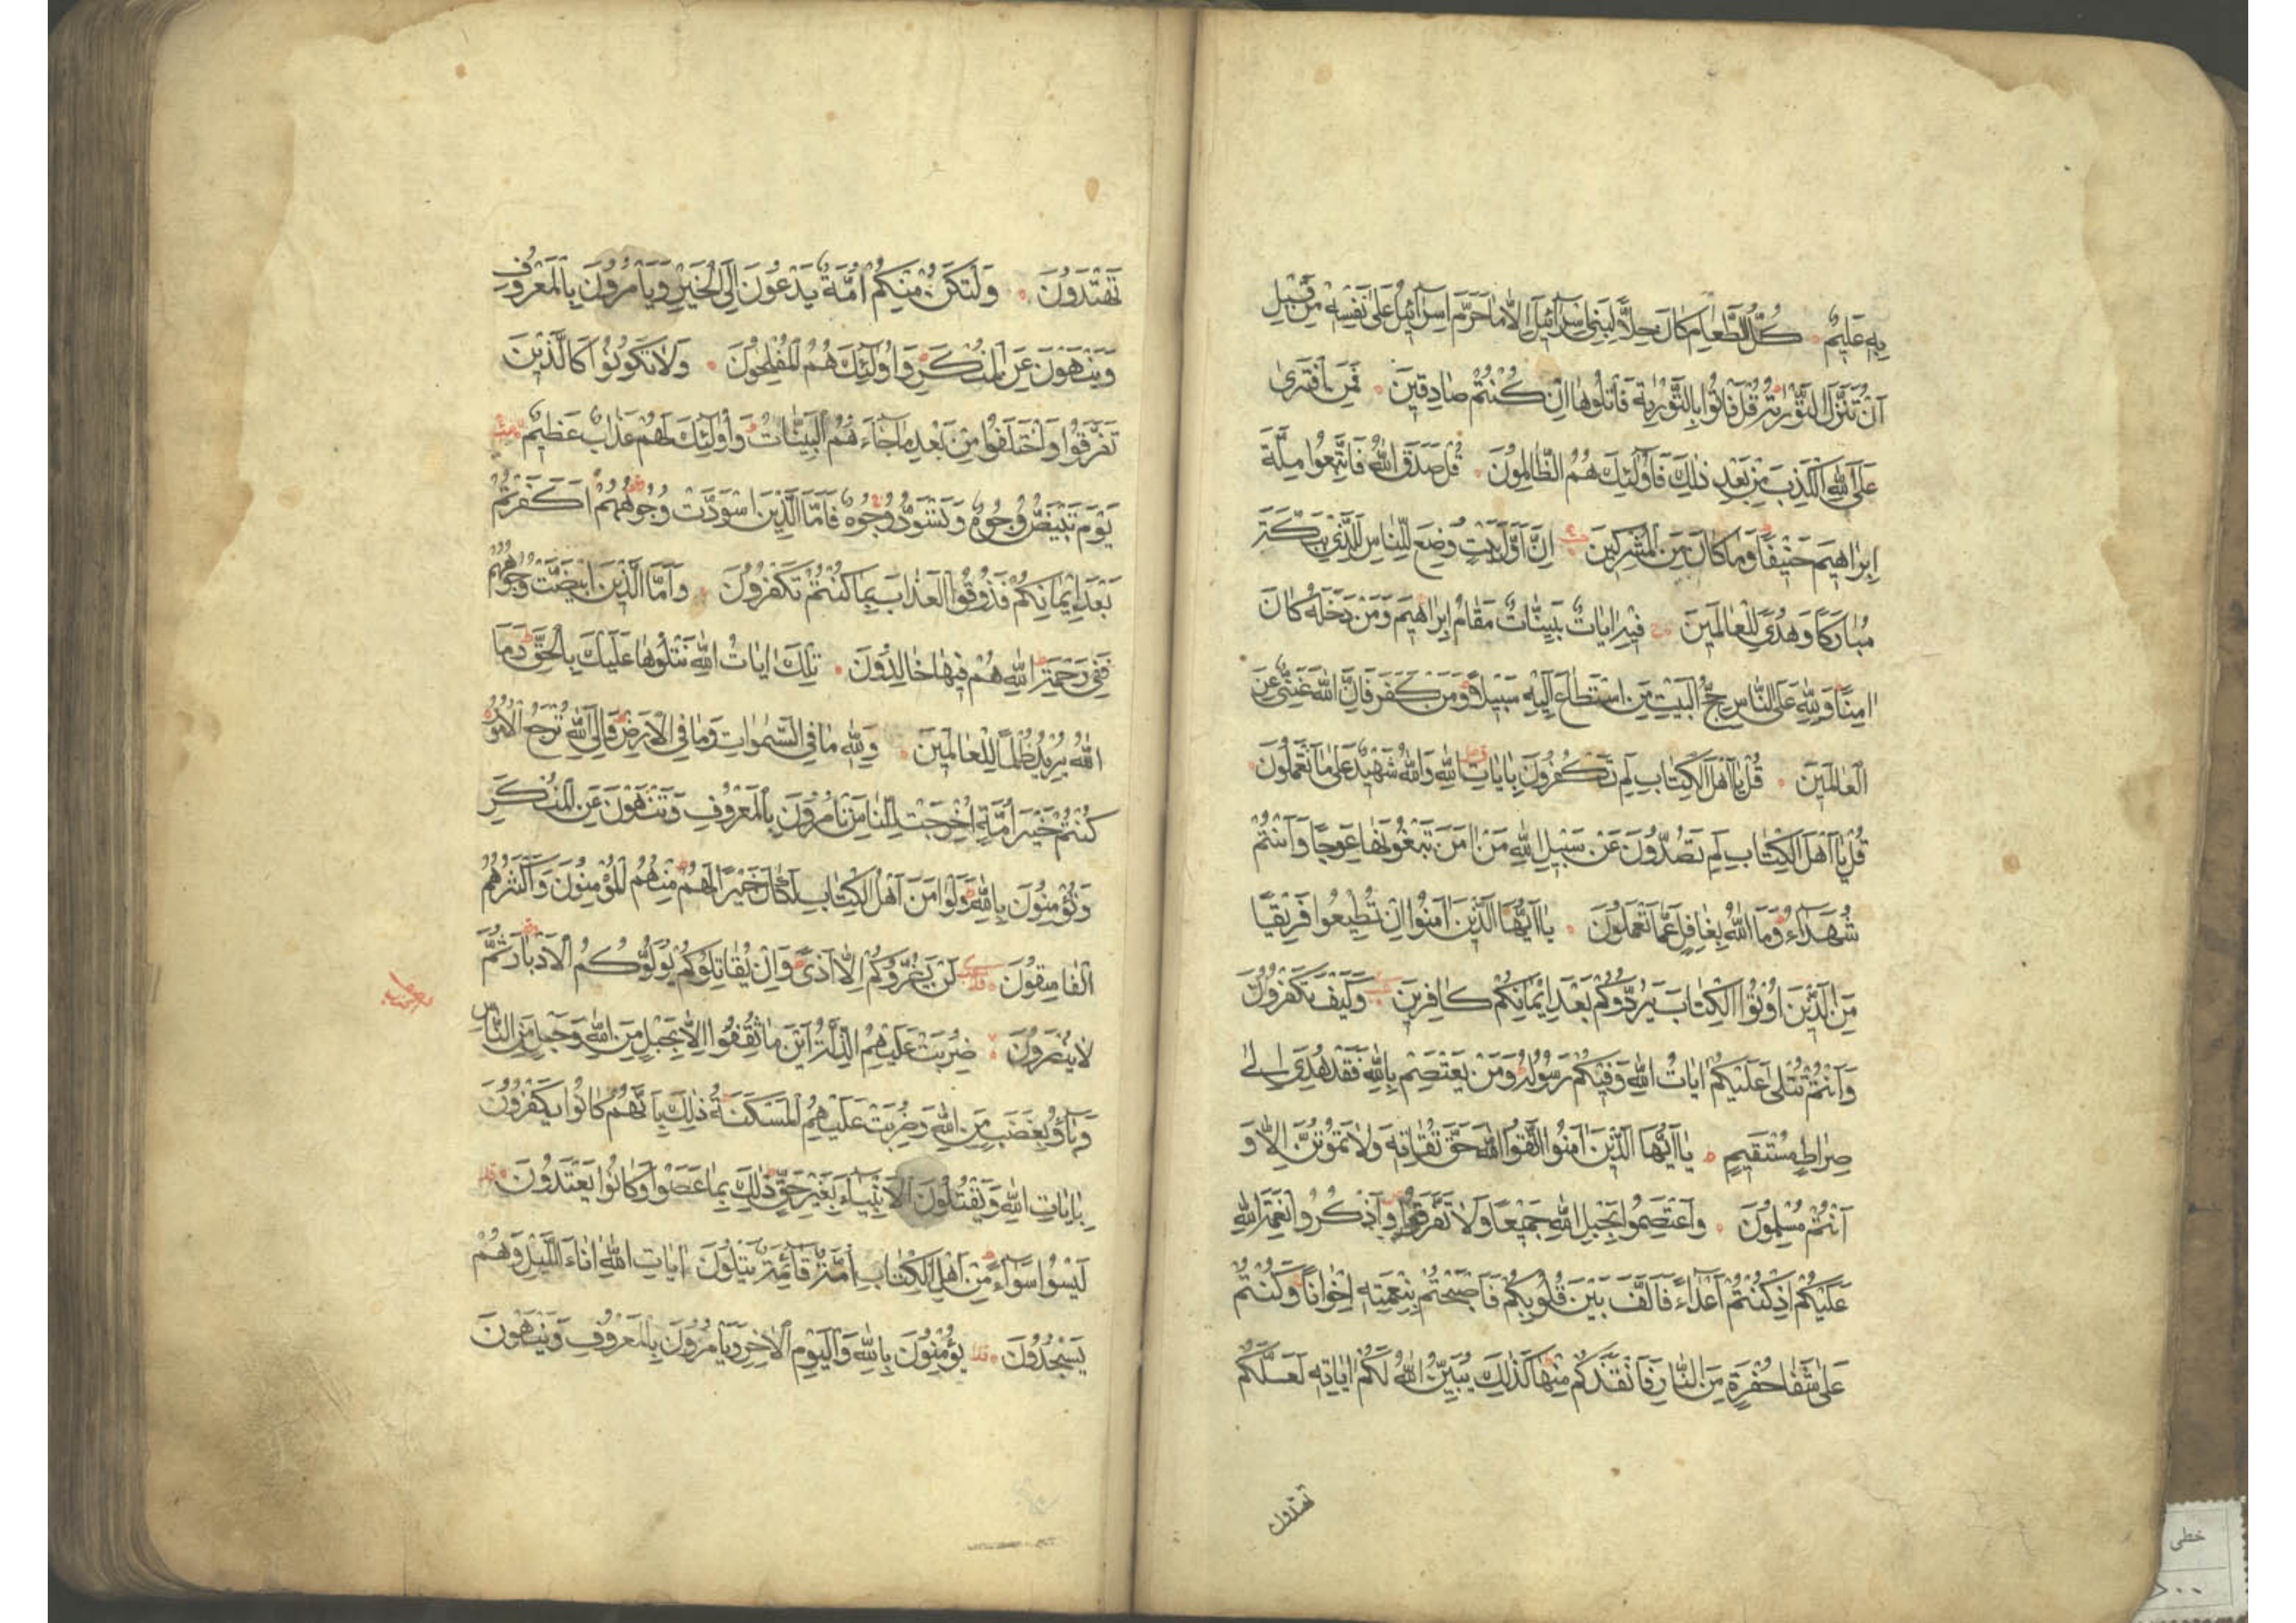 بِهِ عَلِيمٌ كُلُّ الطَّعَامِ كَانَ حِلًّا لِبَنِي إِسْرَآئِيلَ إِلَّا مَا حَرَّمَ إِسْرَآئِيلُ عَلَى نَفْسِهِ مِنْ قَبْلِ
أَنْ تُنَزَّلَ التَّوْرٰيةُ قُلْ فَأْتُوا بِالتَّوْرٰيةِ فَاتْلُوهَا إِنْ كُنْتُمْ صَادِقِينَ فَمَنِ افْتَرٰى
عَلَى اللهِ الْكَذِبَ مِنْ بَعْدِ ذٰلِكَ فَأُولٰئِكَ هُمُ الظَّالِمُونَ قُلْ صَدَقَ اللهُ فَاتَّبِعُوا مِلَّةَ
إِبْرَاهِيمَ حَنِيفًا وَمَا كَانَ مِنَ الْمُشْرِكِينَ إِنَّ أَوَّلَ بَيْتٍ وُضِعَ لِلنَّاسِ لَلَّذِي بِبَكَّةَ
مُبَارَكًا وَهُدًى لِلْعَالَمِينَ فِيهِ اٰيَاتٌ بَيِّنَاتٌ مَقَامُ إِبْرَاهِيمَ وَمَنْ دَخَلَهُ كَانَ
اٰمِنًا وَلِلّٰهِ عَلَى النَّاسِ حِجُّ الْبَيْتِ مَنِ اسْتَطَاعَ إِلَيْهِ سَبِيلًا وَمَنْ كَفَرَ فَإِنَّ اللهَ غَنِيٌّ عَنِ
الْعَالَمِينَ قُلْ يَا أَهْلَ الْكِتَابِ لِمَ تَكْفُرُونَ بِاٰيَاتِ اللهِ وَاللهُ شَهِيدٌ عَلَى مَا تَعْمَلُونَ
قُلْ يَا أَهْلَ الْكِتَابِ لِمَ تَصُدُّونَ عَنْ سَبِيلِ اللهِ مَنْ اٰمَنَ تَبْغُونَهَا عِوَجًا وَأَنْتُمْ
شُهَدَآءُ وَمَا اللهُ بِغَافِلٍ عَمَّا تَعْمَلُونَ يَا أَيُّهَا الَّذِينَ اٰمَنُوا إِنْ تُطِيعُوا فَرِيقًا
مِنَ الَّذِينَ أُوتُوا الْكِتَابَ يَرُدُّوكُمْ بَعْدَ إِيمَانِكُمْ كَافِرِينَ وَكَيْفَ تَكْفُرُونَ
وَأَنْتُمْ تُتْلٰى عَلَيْكُمْ اٰيَاتُ اللهِ وَفِيكُمْ رَسُولُهُ وَمَنْ يَعْتَصِمْ بِاللهِ فَقَدْ هُدِيَ إِلٰى
صِرَاطٍ مُسْتَقِيمٍ يَا أَيُّهَا الَّذِينَ اٰمَنُوا اتَّقُوا اللهَ حَقَّ تُقَاتِهِ وَلَا تَمُوتُنَّ إِلَّا وَ
أَنْتُمْ مُسْلِمُونَ وَاعْتَصِمُوا بِحَبْلِ اللهِ جَمِيعًا وَلَا تَفَرَّقُوا وَاذْكُرُوا نِعْمَةَ اللهِ
عَلَيْكُمْ إِذْ كُنْتُمْ أَعْدَآءً فَأَلَّفَ بَيْنَ قُلُوبِكُمْ فَأَصْبَحْتُمْ بِنِعْمَتِهِ إِخْوَانًا وَكُنْتُمْ
عَلٰى شَفَا حُفْرَةٍ مِنَ النَّارِ فَأَنْقَذَكُمْ مِنْهَا كَذٰلِكَ يُبَيِّنُ اللهُ لَكُمْ اٰيَاتِهِ لَعَلَّكُمْ
تهتدون
تَهْتَدُونَ وَلْتَكُنْ مِنْكُمْ أُمَّةٌ يَدْعُونَ إِلَى الْخَيْرِ وَيَأْمُرُونَ بِالْمَعْرُوفِ
وَيَنْهَوْنَ عَنِ الْمُنْكَرِ وَأُولٰئِكَ هُمُ الْمُفْلِحُونَ وَلَا تَكُونُوا كَالَّذِينَ
تَفَرَّقُوا وَاخْتَلَفُوا مِنْ بَعْدِ مَا جَاءَهُمُ الْبَيِّنَاتُ وَأُولٰئِكَ لَهُمْ عَذَابٌ عَظِيمٌ
يَوْمَ تَبْيَضُّ وُجُوهٌ وَتَسْوَدُّ وُجُوهٌ فَأَمَّا الَّذِينَ اسْوَدَّتْ وُجُوهُهُمْ أَكَفَرْتُمْ
بَعْدَ إِيمَانِكُمْ فَذُوقُوا الْعَذَابَ بِمَا كُنْتُمْ تَكْفُرُونَ وَأَمَّا الَّذِينَ ابْيَضَّتْ وُجُوهُهُمْ
فَفِي رَحْمَةِ اللهِ هُمْ فِيهَا خَالِدُونَ تِلْكَ اٰيَاتُ اللهِ نَتْلُوهَا عَلَيْكَ بِالْحَقِّ وَمَا
اللهُ يُرِيدُ ظُلْمًا لِلْعَالَمِينَ وَلِلّٰهِ مَا فِي السَّمٰوَاتِ وَمَا فِي الْأَرْضِ وَإِلَى اللهِ تُرْجَعُ الْأُمُورُ
كُنْتُمْ خَيْرَ أُمَّةٍ أُخْرِجَتْ لِلنَّاسِ تَأْمُرُونَ بِالْمَعْرُوفِ وَتَنْهَوْنَ عَنِ الْمُنْكَرِ
وَتُؤْمِنُونَ بِاللهِ وَلَوْ اٰمَنَ أَهْلُ الْكِتَابِ لَكَانَ خَيْرًا لَهُمْ مِنْهُمُ الْمُؤْمِنُونَ وَأَكْثَرُهُمُ
الْفَاسِقُونَ لَنْ يَضُرُّوكُمْ إِلَّا أَذًى وَإِنْ يُقَاتِلُوكُمْ يُوَلُّوكُمُ الْأَدْبَارَ ثُمَّ
لَا يُنْصَرُونَ ضُرِبَتْ عَلَيْهِمُ الذِّلَّةُ أَيْنَ مَا ثُقِفُوا إِلَّا بِحَبْلٍ مِنَ اللهِ وَحَبْلٍ مِنَ النَّاسِ
وَبَآؤُ بِغَضَبٍ مِنَ اللهِ وَضُرِبَتْ عَلَيْهِمُ الْمَسْكَنَةُ ذٰلِكَ بِأَنَّهُمْ كَانُوا يَكْفُرُونَ
بِاٰيَاتِ اللهِ وَيَقْتُلُونَ الْأَنْبِيَآءَ بِغَيْرِ حَقٍّ ذٰلِكَ بِمَا عَصَوْا وَكَانُوا يَعْتَدُونَ
لَيْسُوا سَوَآءً مِنْ أَهْلِ الْكِتَابِ أُمَّةٌ قَآئِمَةٌ يَتْلُونَ اٰيَاتِ اللهِ اٰنَاءَ اللَّيْلِ وَهُمْ
يَسْجُدُونَ يُؤْمِنُونَ بِاللهِ وَالْيَوْمِ الْاٰخِرِ وَيَأْمُرُونَ بِالْمَعْرُوفِ وَيَنْهَوْنَ
خطی